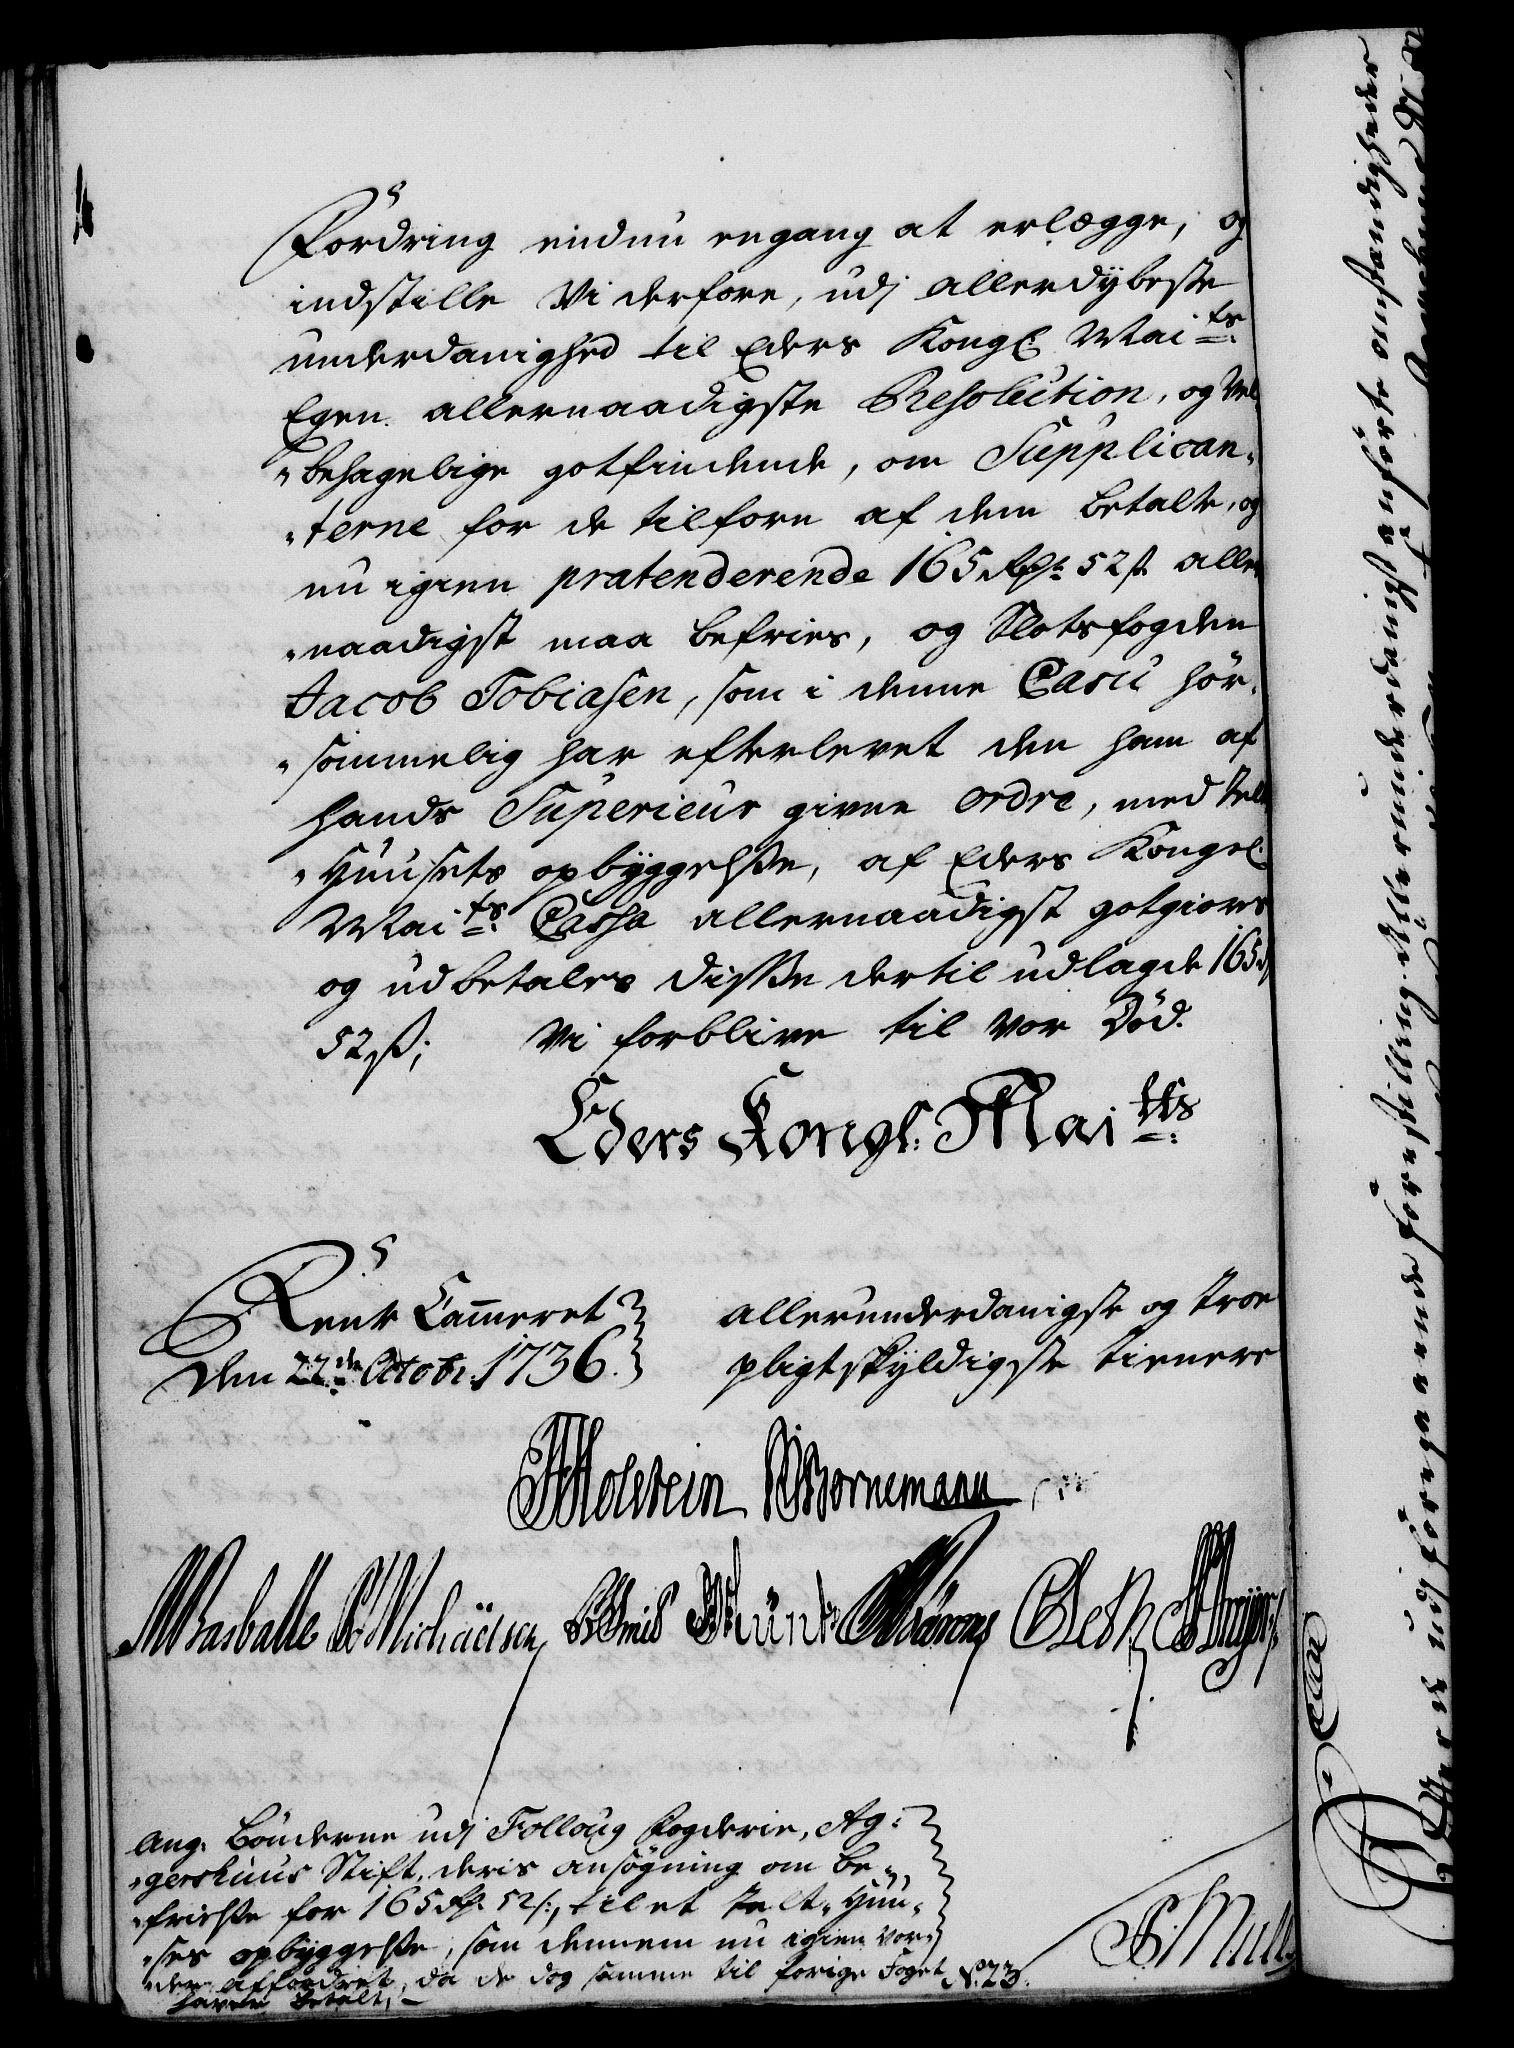 Fordring endnu engang at erlægge; og
indstille Vi derfore, udj allerdybeste
underdanighed til Eders Kongl: Mai:ts
Egen allernaadigste Resolution, og Vel
"behagelige gotfindende, om Supplican"
"terne for de tilforn af dem betalte, og
nu igien prætenderende 165 Rdr: 52 s. aller
"naadigst maa befries, og Slotsfogden
Jacob Tobiasen, som i denne Casu hør"
"sommelig har efterlevet den ham af
hands Superieur givne ordre, med Telt
"Huusets opbyggelsse, af Eders Kongel:
Mai:ts Cassa allernaadigst gotgiøres
og udbetales disse dertil udlagde 165
52 s; Vi forblive til vor Død.
Eders Kongl: Mai:tts
Rente Cammeret
den 22de Octobr: 1736.
allerunderdanigste og troe
pligtskyldigste tienere
JHolstein Bornemann
Basballe Michaelsen Smid Munk
Ang: Bønderne udj Follоug fogderie, Ag:
"gershuus Stift, deris ansøgning om be"
"frielsse for 165 Rdr 52 s:, til et Telt-Huu"
"ses opbyggelsse, som dennem nu igien vor"
"der affordret, da de dog samme til forige Foget
hafver betalt,
No 23.
Müll
Efter udj foregaaende forestilling allerunderdanigst anførte omstændigheder